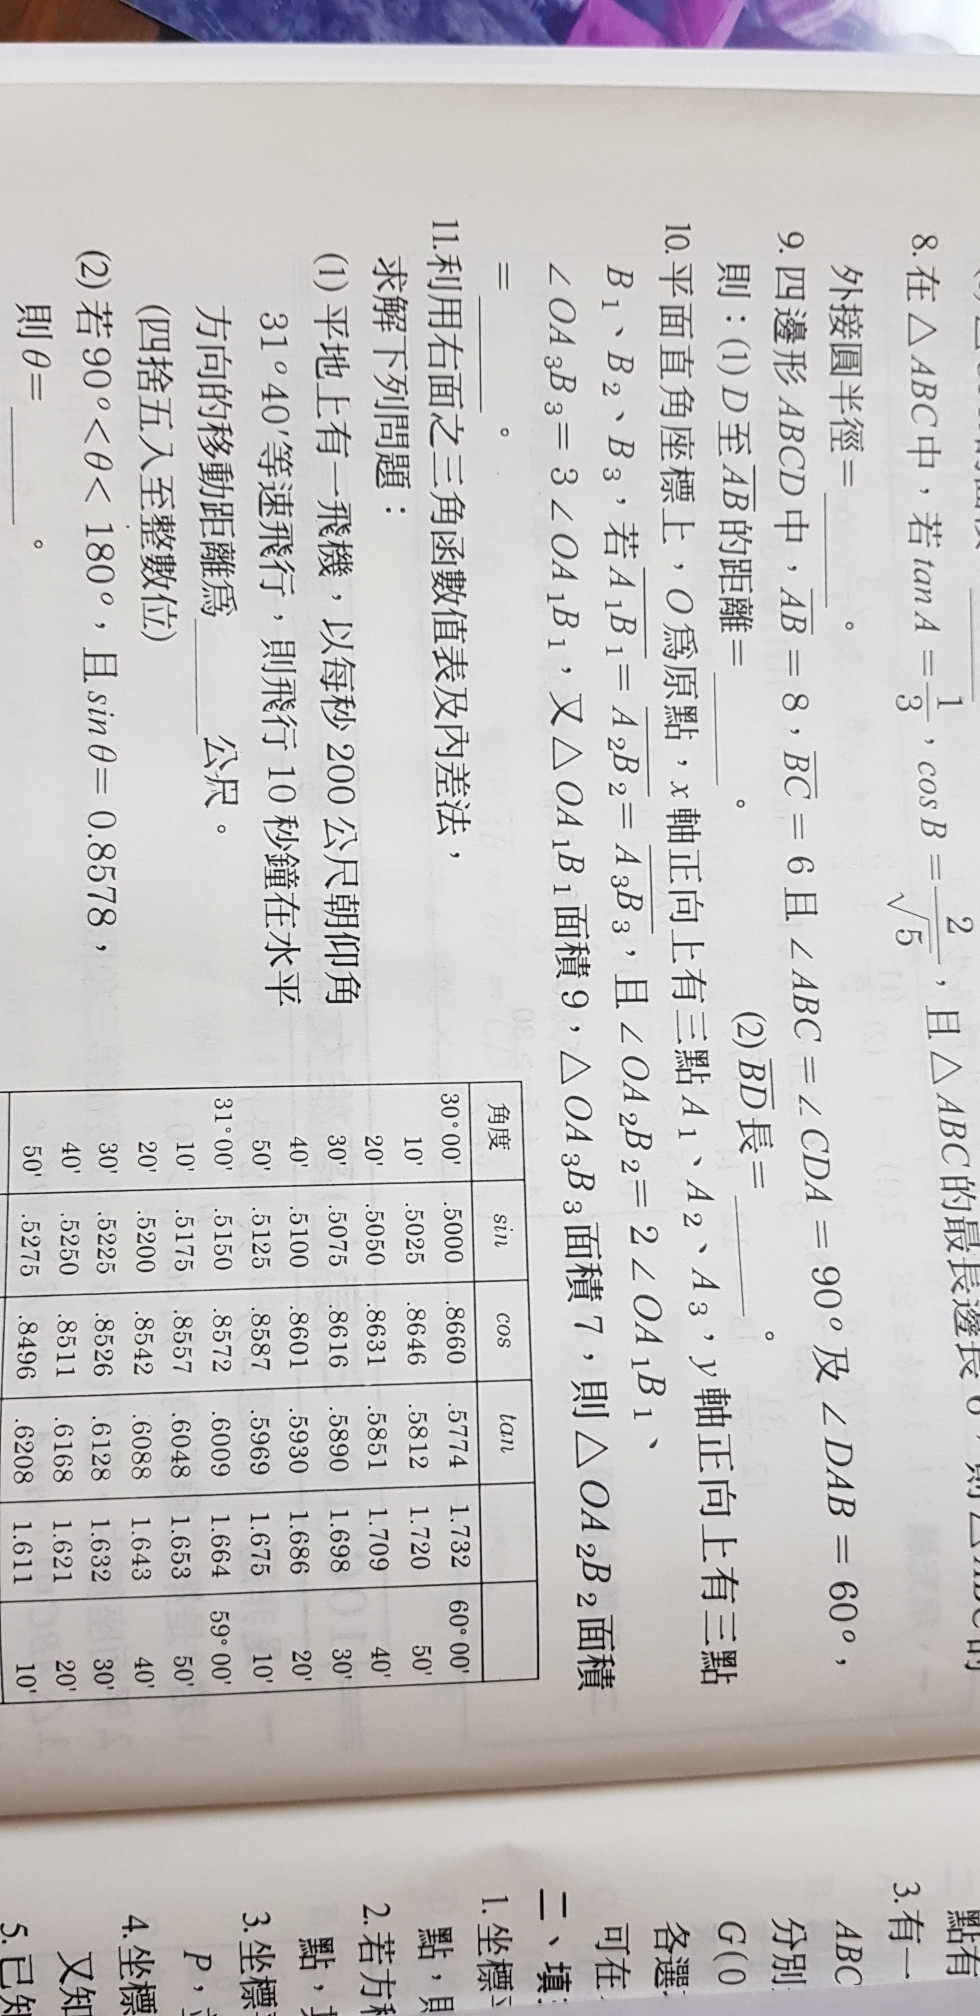 8.在△ABC中，若tan A=1/3，cos B=2/√5，且△ABC的最長邊長
外接圓半徑=______。
9.四邊形ABCD中，AB=8，BC=6且∠ABC=∠CDA=90°及∠DAB=60°，
則：(1)D至AB的距離=______。 (2)BD長=______。
10.平面直角座標上，O為原點，x軸正向上有三點A₁、A₂、A₃，y軸正向上有三點
B₁、B₂、B₃，若A₁B₁=A₂B₂=A₃B₃，且∠OA₂B₂=2∠OA₁B₁、
∠OA₃B₃=3∠OA₁B₁，又△OA₁B₁面積9，△OA₃B₃面積7，則△OA₂B₂面積
=______。
11.利用右面之三角函數值表及內差法，
求解下列問題：
(1)平地上有一飛機，以每秒200公尺朝仰角
31°40'等速飛行，則飛行10秒鐘在水平
方向的移動距離為______公尺。
(四捨五入至整數位)
(2)若90°<θ<180°，且sinθ=0.8578，
則θ=______。
角度 sin cos tan
30°00' .5000 .8660 .5774 1.732 60°00'
10' .5025 .8646 .5812 1.720 50'
20' .5050 .8631 .5851 1.709 40'
30' .5075 .8616 .5890 1.698 30'
40' .5100 .8601 .5930 1.686 20'
50' .5125 .8587 .5969 1.675 10'
31°00' .5150 .8572 .6009 1.664 59°00'
10' .5175 .8557 .6048 1.653 50'
20' .5200 .8542 .6088 1.643 40'
30' .5225 .8526 .6128 1.632 30'
40' .5250 .8511 .6168 1.621 20'
50' .5275 .8496 .6208 1.611 10'
點有
3.有一
ABC
分別
G(0
各選
可在
二、填
1.坐標
點，
2.若方
點，
3.坐標
P，
4.坐標
又知
5.已知